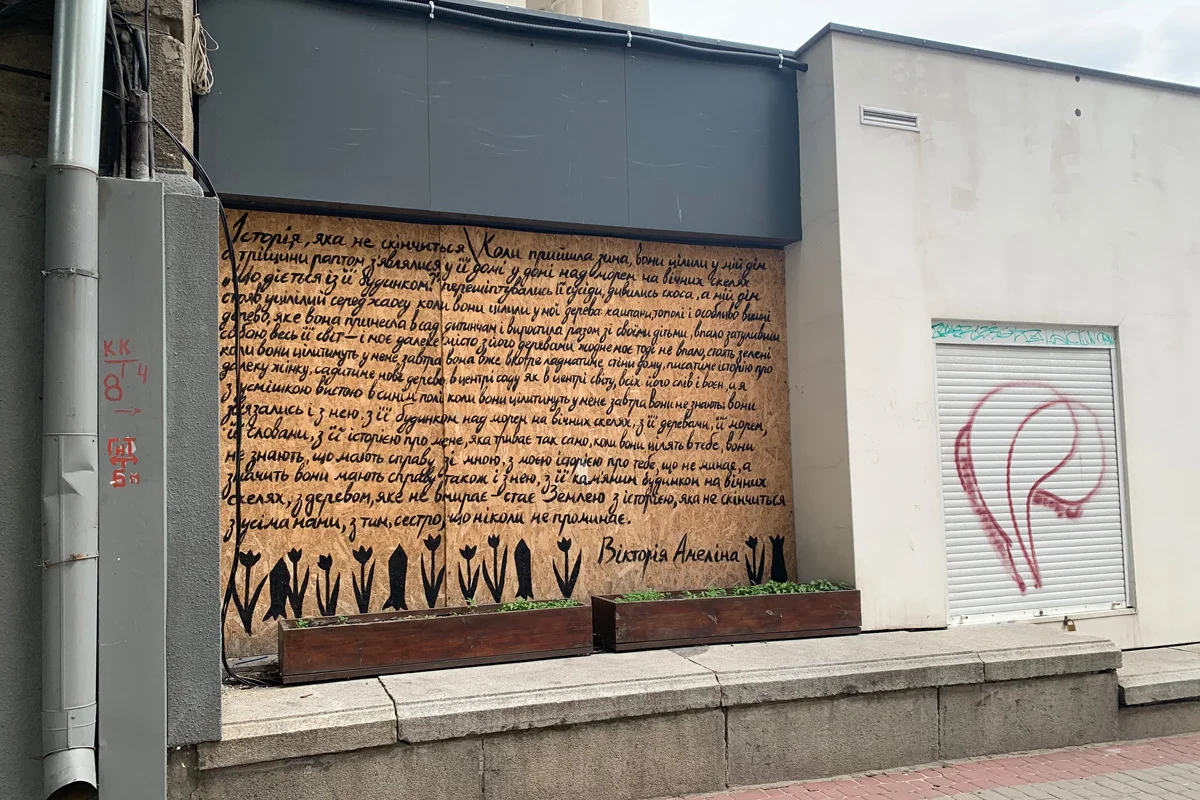 Історія, яка не скінчиться \ Коли прийшла зима, вони цілили у мій дім
тріщини раптом з'являлися у її домі у домі над морем на вічних скелях
що діється із її будинком? перешіптувались її сусіди, дивились скоса, а мій дім
стояв уцілілий серед хаосу коли вони цілили у мої дерева: каштани, тополі і особливо вишні
дерево, яке вона принесла в сад дитинчам і виростила разом зі своїми дітьми, впало затуливши
собою весь її світ – і моє далеке місто з його деревами жодне моє тоді не впало, стоять зелені
коли вони цілитимуть у мене завтра вона вже вкотре ладнатиме стіни дому, писатиме історію про
далеку жінку, садитиме нове дерево в центрі саду як в центрі світу, всіх його слів і воєн, а я
з усмішкою вистою в синім полі коли вони цілитимуть у мене завтра вони не знають: вони
зв'язались і з нею, з її будинком над морем на вічних скелях, з її деревами, її морем,
її словами, з її історією про мене, яка триває так само, коли вони цілять в тебе, вони
не знають, що мають справу зі мною, з моєю історією про тебе, що не минає, а
значить вони мають справу також і з нею, з її кам'яним будинком на вічних
скелях, з деревом, яке не вмирає – стає Землею з історією, яка не скінчиться
з усіма нами, з тим, сестро, що ніколи не проминає.
Вікторія Амеліна
КК
Т 4
8